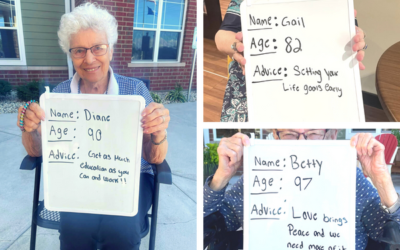 Name: Diane
Age: 90
Advice: Get as much
education as you
can and learn!!
Name: Gail
Age: 82
Advice: Setting your
Life goals early
Name: Betty
Age: 97
Advice: Love brings
Peace and we
need more of it